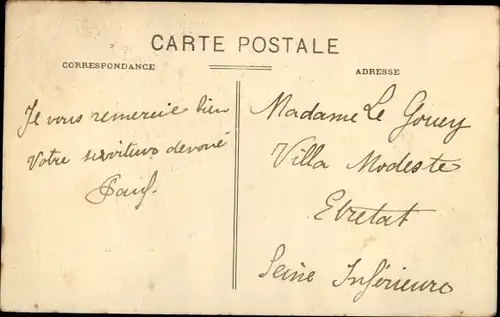 CARTE POSTALE
CORRESPONDANCE
ADRESSE
Je vous remercie bien
Votre serviteur dévoué
Madame Le Gouey
Villa Modeste
Etretat
Seine Inférieure